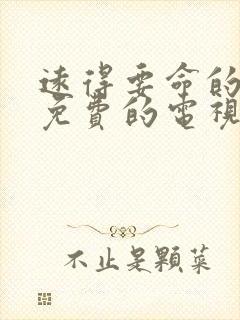 遠得要命的
免費的電視
不止是顆菜